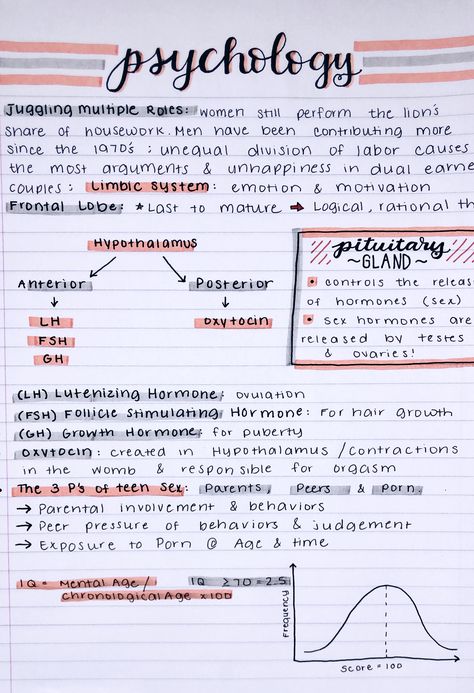 psychology
Juggling Multiple Roles: women still perform the lion's
share of housework. Men have been contributing more
since the 1970's : unequal division of labor causes
the most arguments & unhappiness in dual earne
couples : Limbic System: emotion & motivation
Frontal Lobe: * Last to mature → Logical, rational th
Hypothalamus
Anterior
Posterior
LH
FSH
GH
oxytocin
pituitary
~GLAND~
• controls the releas
of hormones (sex)
• sex hormones are
released by testes
& ovaries!
(LH) Lutenizing Hormone: ovulation
(FSH) Follicle Stimulating Hormone: For hair growth
(GH) Growth Hormone: for puberty
oxytocin: created in Hypothalamus / contractions
in the womb & responsible for orgasm
• The 3 P's of teen sex: Parents, Peers & Porn.
→ Parental involvement & behaviors
→ Peer pressure of behaviors & judgement
→ Exposure to Porn @ Age & time
IQ = Mental Age /
chronological Age x100
IQ ≥70 = 2.5
Frequency
Score = 100